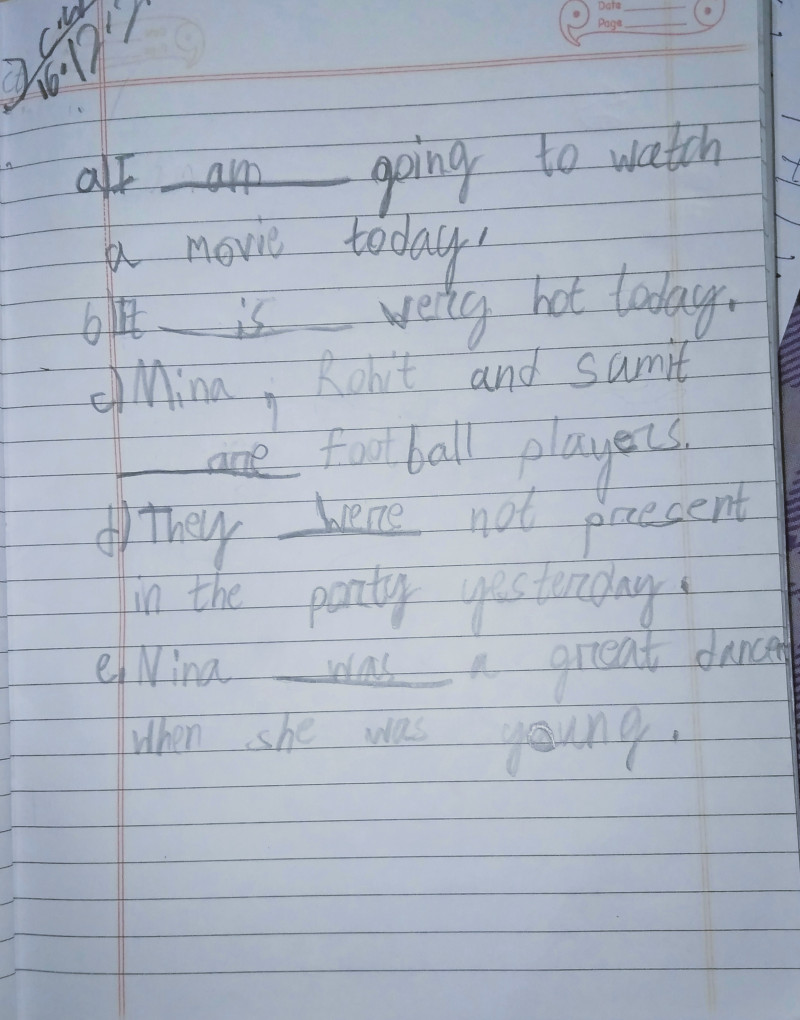 Date
Page
a) I am going to watch
a movie today,
b) It is very hot today.
c) Mina, Rohit and Samit
are football players.
d) They were not present
in the party yesterday.
e, Nina was a great dancer
when she was young.